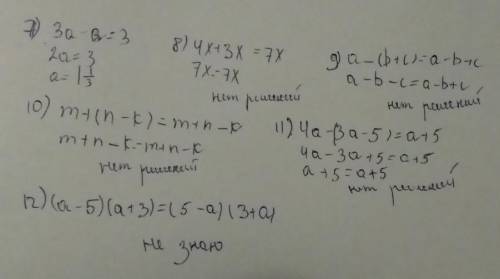 7) 3a - a = 3
2a = 3
a = 1 1/3
8) 4x + 3x = 7x
7x - 7x
нет решений
9) a - (b + c) = a - b + c
a - b - c = a - b + c
нет решений
10) m + (n - k) = m + n - k
m + n - k = m + n - k
нет решений
11) 4a - (3a - 5) = a + 5
4a - 3a + 5 = a + 5
a + 5 = a + 5
нет решений
12) (a - 5)(a + 3) = (5 - a)(3 + a)
не знаю